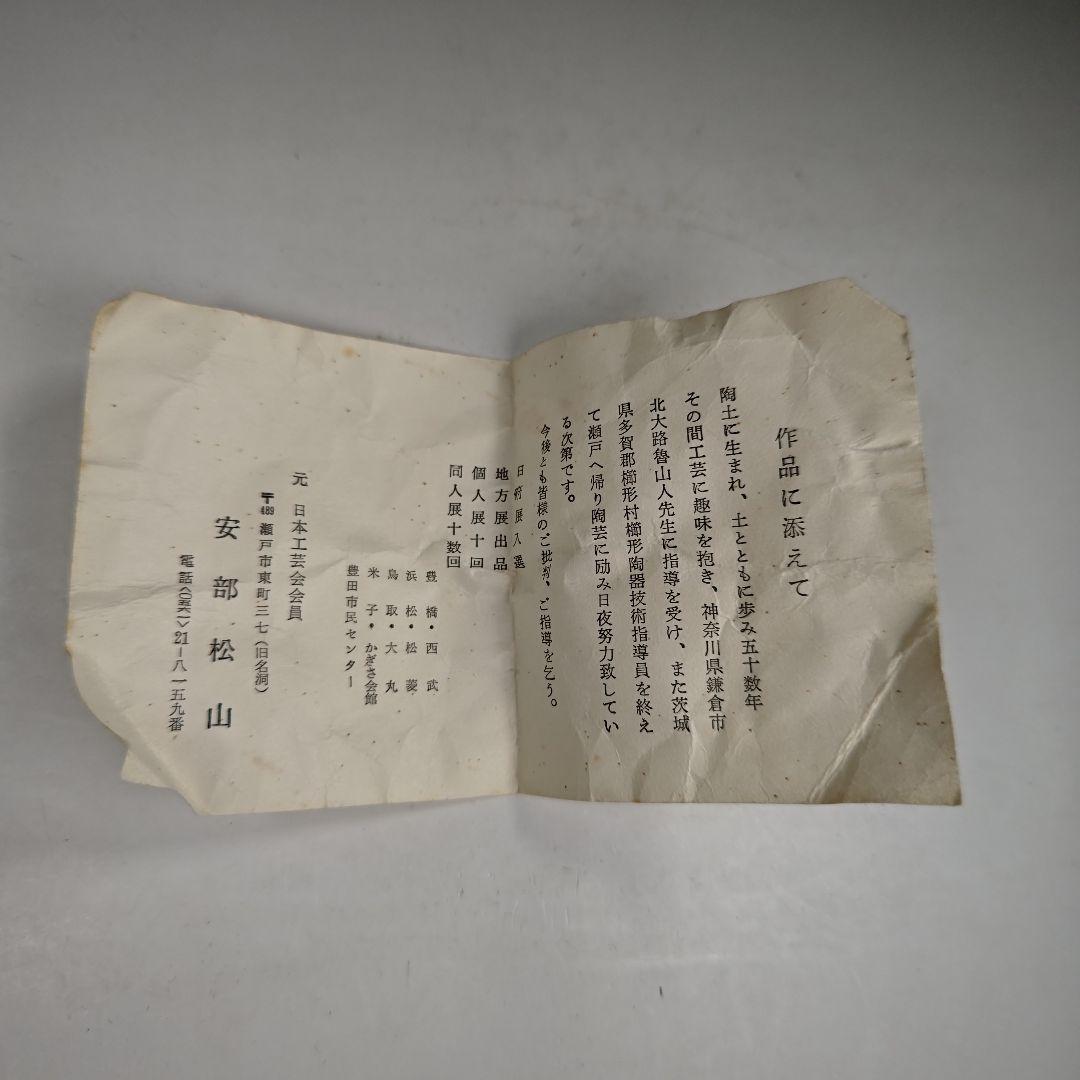 作品に添えて
陶土に生まれ、土とともに歩み五十数年
その間工芸に趣味を抱き、神奈川県鎌倉市
北大路魯山人先生に指導を受け、また茨城
県多賀郡櫛形村櫛形陶器技術指導員を終え
て瀬戸へ帰り陶芸に励み日夜努力致してい
る次第です。
今後とも皆様のご批判、ご指導を乞う。
日府展入選
地方展出品
個人展十回
同人展十数回
豊橋・西武
浜松・松菱
鳥取・大丸
米子・かぎさ会館
豊田市民センター
元 日本工芸会会員
〒489 瀬戸市東町三七（旧名洞）
安部松山
電話〈〇五六一〉21-八一五九番